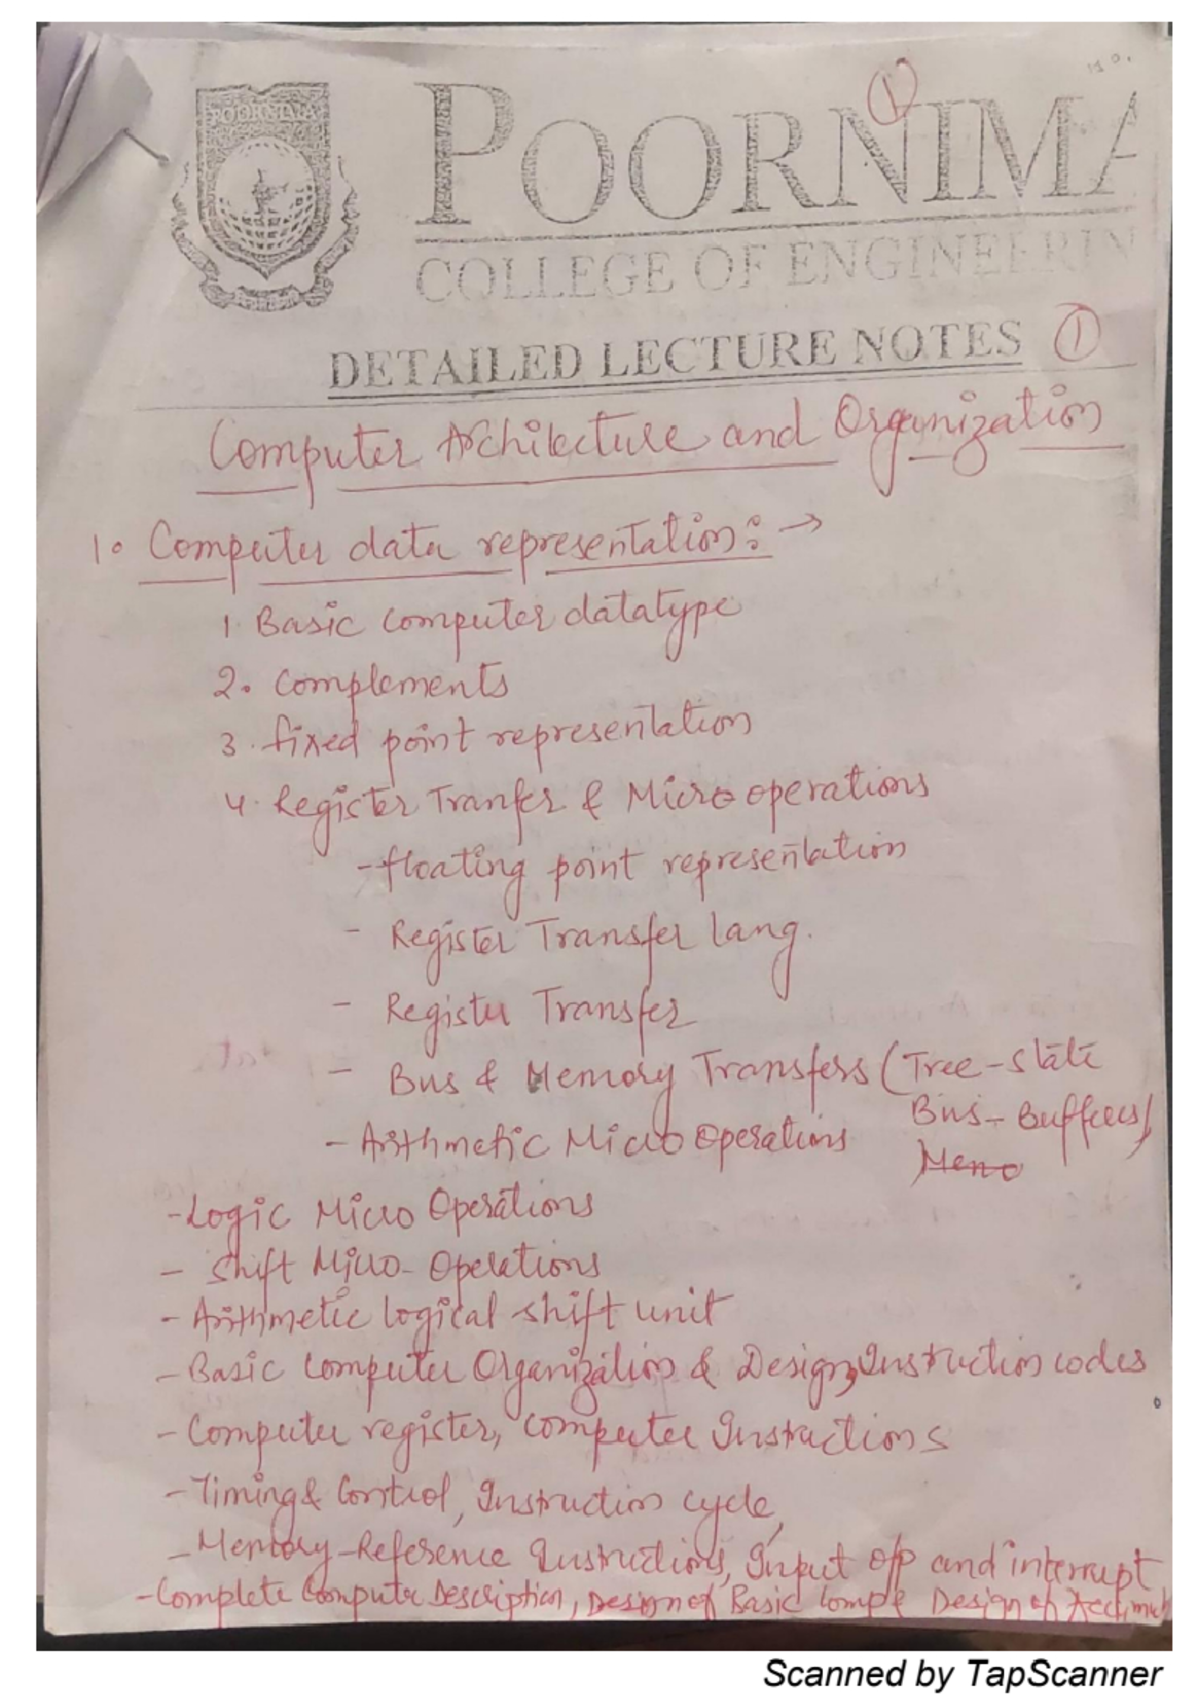 POORNIMA
1
POORNIMA
COLLEGE OF ENGINEERIN
DETAILED LECTURE NOTES 1
Computer Architecture and Organization
1. Computer data representation: →
1. Basic Computer datatype
2. Complements
3. fixed point representation
4. Register Tranfer & Micro operations
- floating point representation
- Register Transfer lang.
- Register Transfer
- Bus & Memory Transfers (Tree-state
Bus-Buffers)
- Arithmetic Micro Operations
Memo
- Logic Micro Operations
- Shift Micro-Operations
- Arithmetic logical shift unit
- Basic Computer Organization & Design, Instruction codes
- Computer register, Computer Instructions
- Timing & Control, Instruction cycle,
- Memory-Reference Instructions, Input o/p and interrupt
- Complete Computer Description, Design of Basic Comp Design of
Scanned by TapScanner